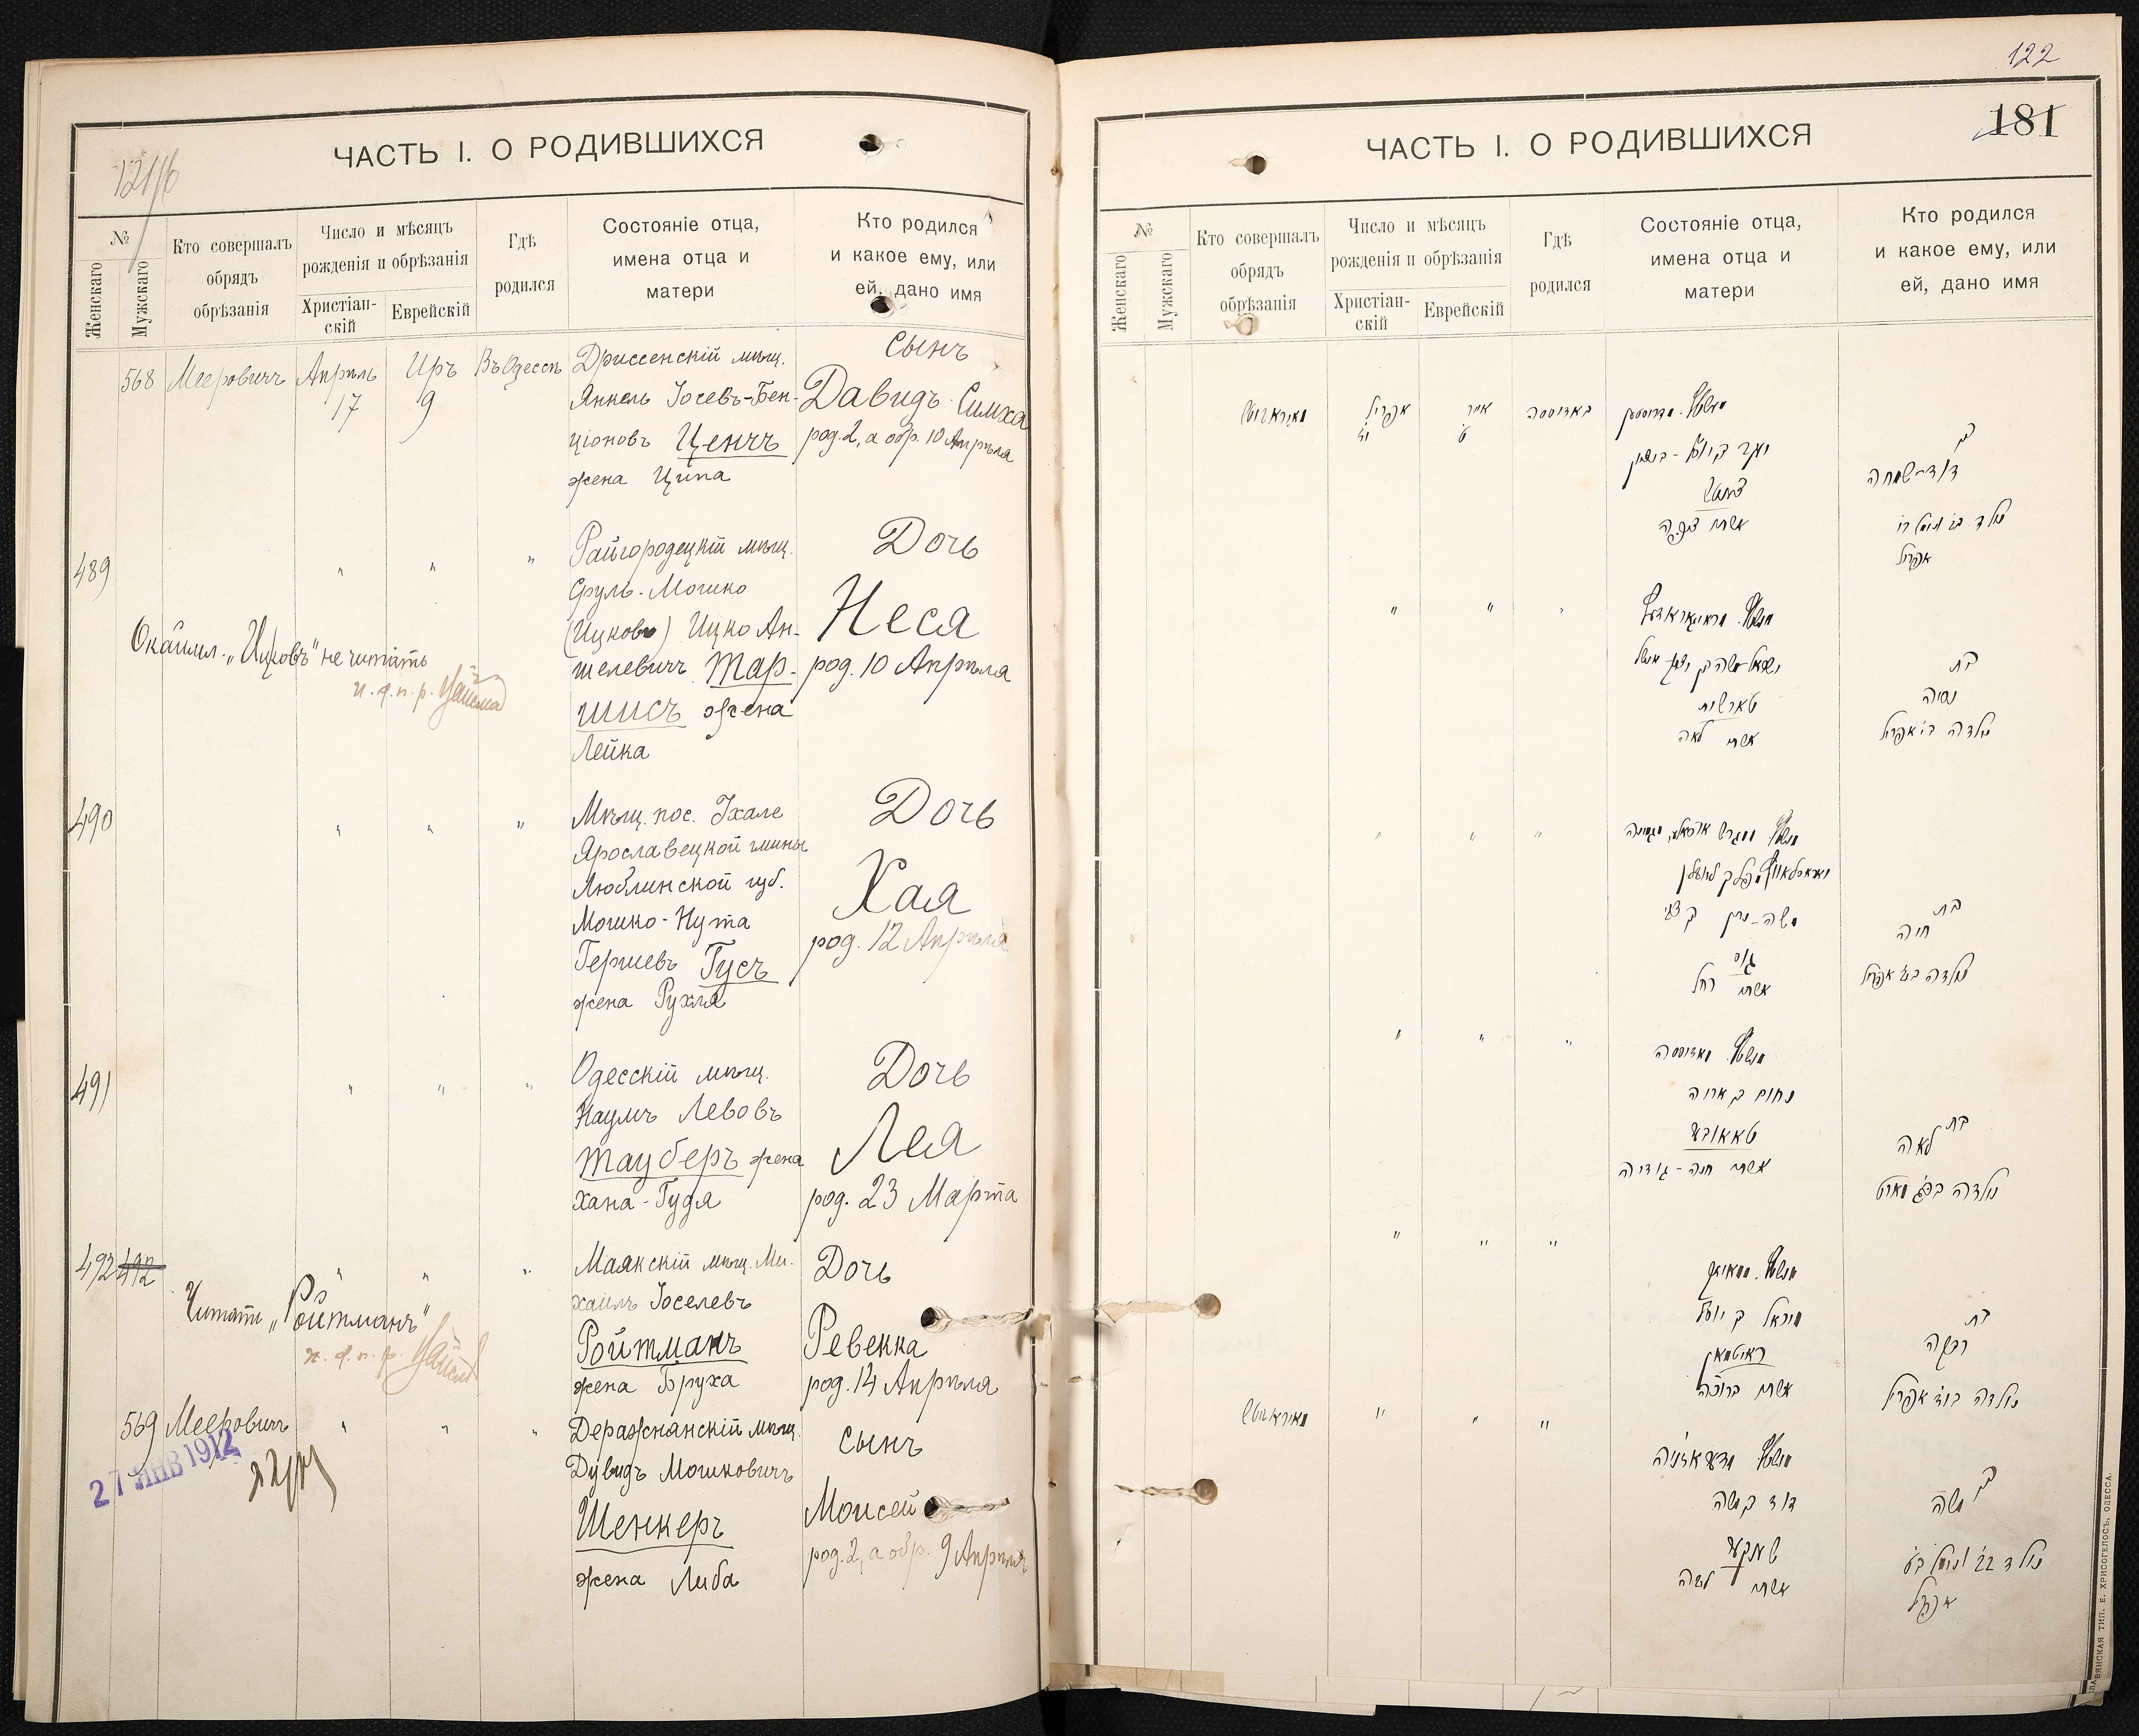 ЧАСТЬ I. О РОДИВШИХСЯ
№
Женскаго
Мужскаго
Кто совершалъ
обрядъ
обрѣзанія
Число и мѣсяцъ
рожденія и обрѣзанія
Христіан-
скій
Еврейскій
Гдѣ
родился
Состояніе отца,
имена отца и
матери
Кто родился
и какое ему, или
ей, дано имя
568 Мееровичъ Апрѣль 17 Иръ 9 Въ Одессѣ
Дриссенскій мѣщ.
Янкель Іосевъ-Бен-
ціоновъ Ценчъ
жена Ципа
Сынъ
Давидъ-Симха
род. 2, а обр. 10 Апрѣля
489 " " "
Райгородецкій мѣщ.
Сруль-Мошко
(Ицковъ) Ицко Ан-
шелевичъ Тар-
шисъ жена
Лейка
Дочь
Неся
род. 10 Апрѣля
"Ицковъ" не читать
490 " " "
Мѣщ. пос. Ухале
Ярославецкой гмины
Люблинской губ.
Мошко-Нута
Гершевъ Гусъ
жена Рухля
Дочь
Хая
род. 12 Апрѣля
491 " " "
Одесскій мѣщ.
Наумъ Левовъ
Тауберъ жена
Хана-Гудя
Дочь
Лея
род. 23 Марта
492 412 " " "
Маякскій мѣщ. Ми-
хаилъ Іоселевъ
Ройтманъ
жена Бруха
Дочь
Ревекка
род. 14 Апрѣля
Читать "Ройтманъ"
569 Мееровичъ " " "
Деражнянскій мѣщ.
Дувидъ Мошковичъ
Шенкеръ
жена Либа
Сынъ
Моисей
род. 2, а обр. 9 Апрѣля
27 ЯНВ 1912
122
181
ЧАСТЬ I. О РОДИВШИХСЯ
№
Женскаго
Мужскаго
Кто совершалъ
обрядъ
обрѣзанія
Число и мѣсяцъ
рожденія и обрѣзанія
Христіан-
скій
Еврейскій
Гдѣ
родился
Состояніе отца,
имена отца и
матери
Кто родился
и какое ему, или
ей, дано имя
מאיראוויטש אפריל יז אייר ט באדיססה
אשתו ציפה
בן
דוד-שמחה
אפריל
" " "
טארשיש
אשתו לאה
בת
נסיה
נולדה בי׳ אפריל
" " "
גוס
אשתו רחל
בת
חיה
נולדה בי״ב אפריל
" " "
נחום בן אריה
טאאובער
אשתו חנה-גודיה
בת
לאה
נולדה בכ״ג מארט
" " "
ראיטמאן
אשתו ברוכה
בת
רבקה
נולדה בי״ד אפריל
מאיראוויטש " " "
דוד בן משה
שענקער
אשתו ליבה
בן
משה
אפריל
СЛАВЯНСКАЯ ТИП. Е. ХРИСОГЕЛОСЪ, ОДЕССА.